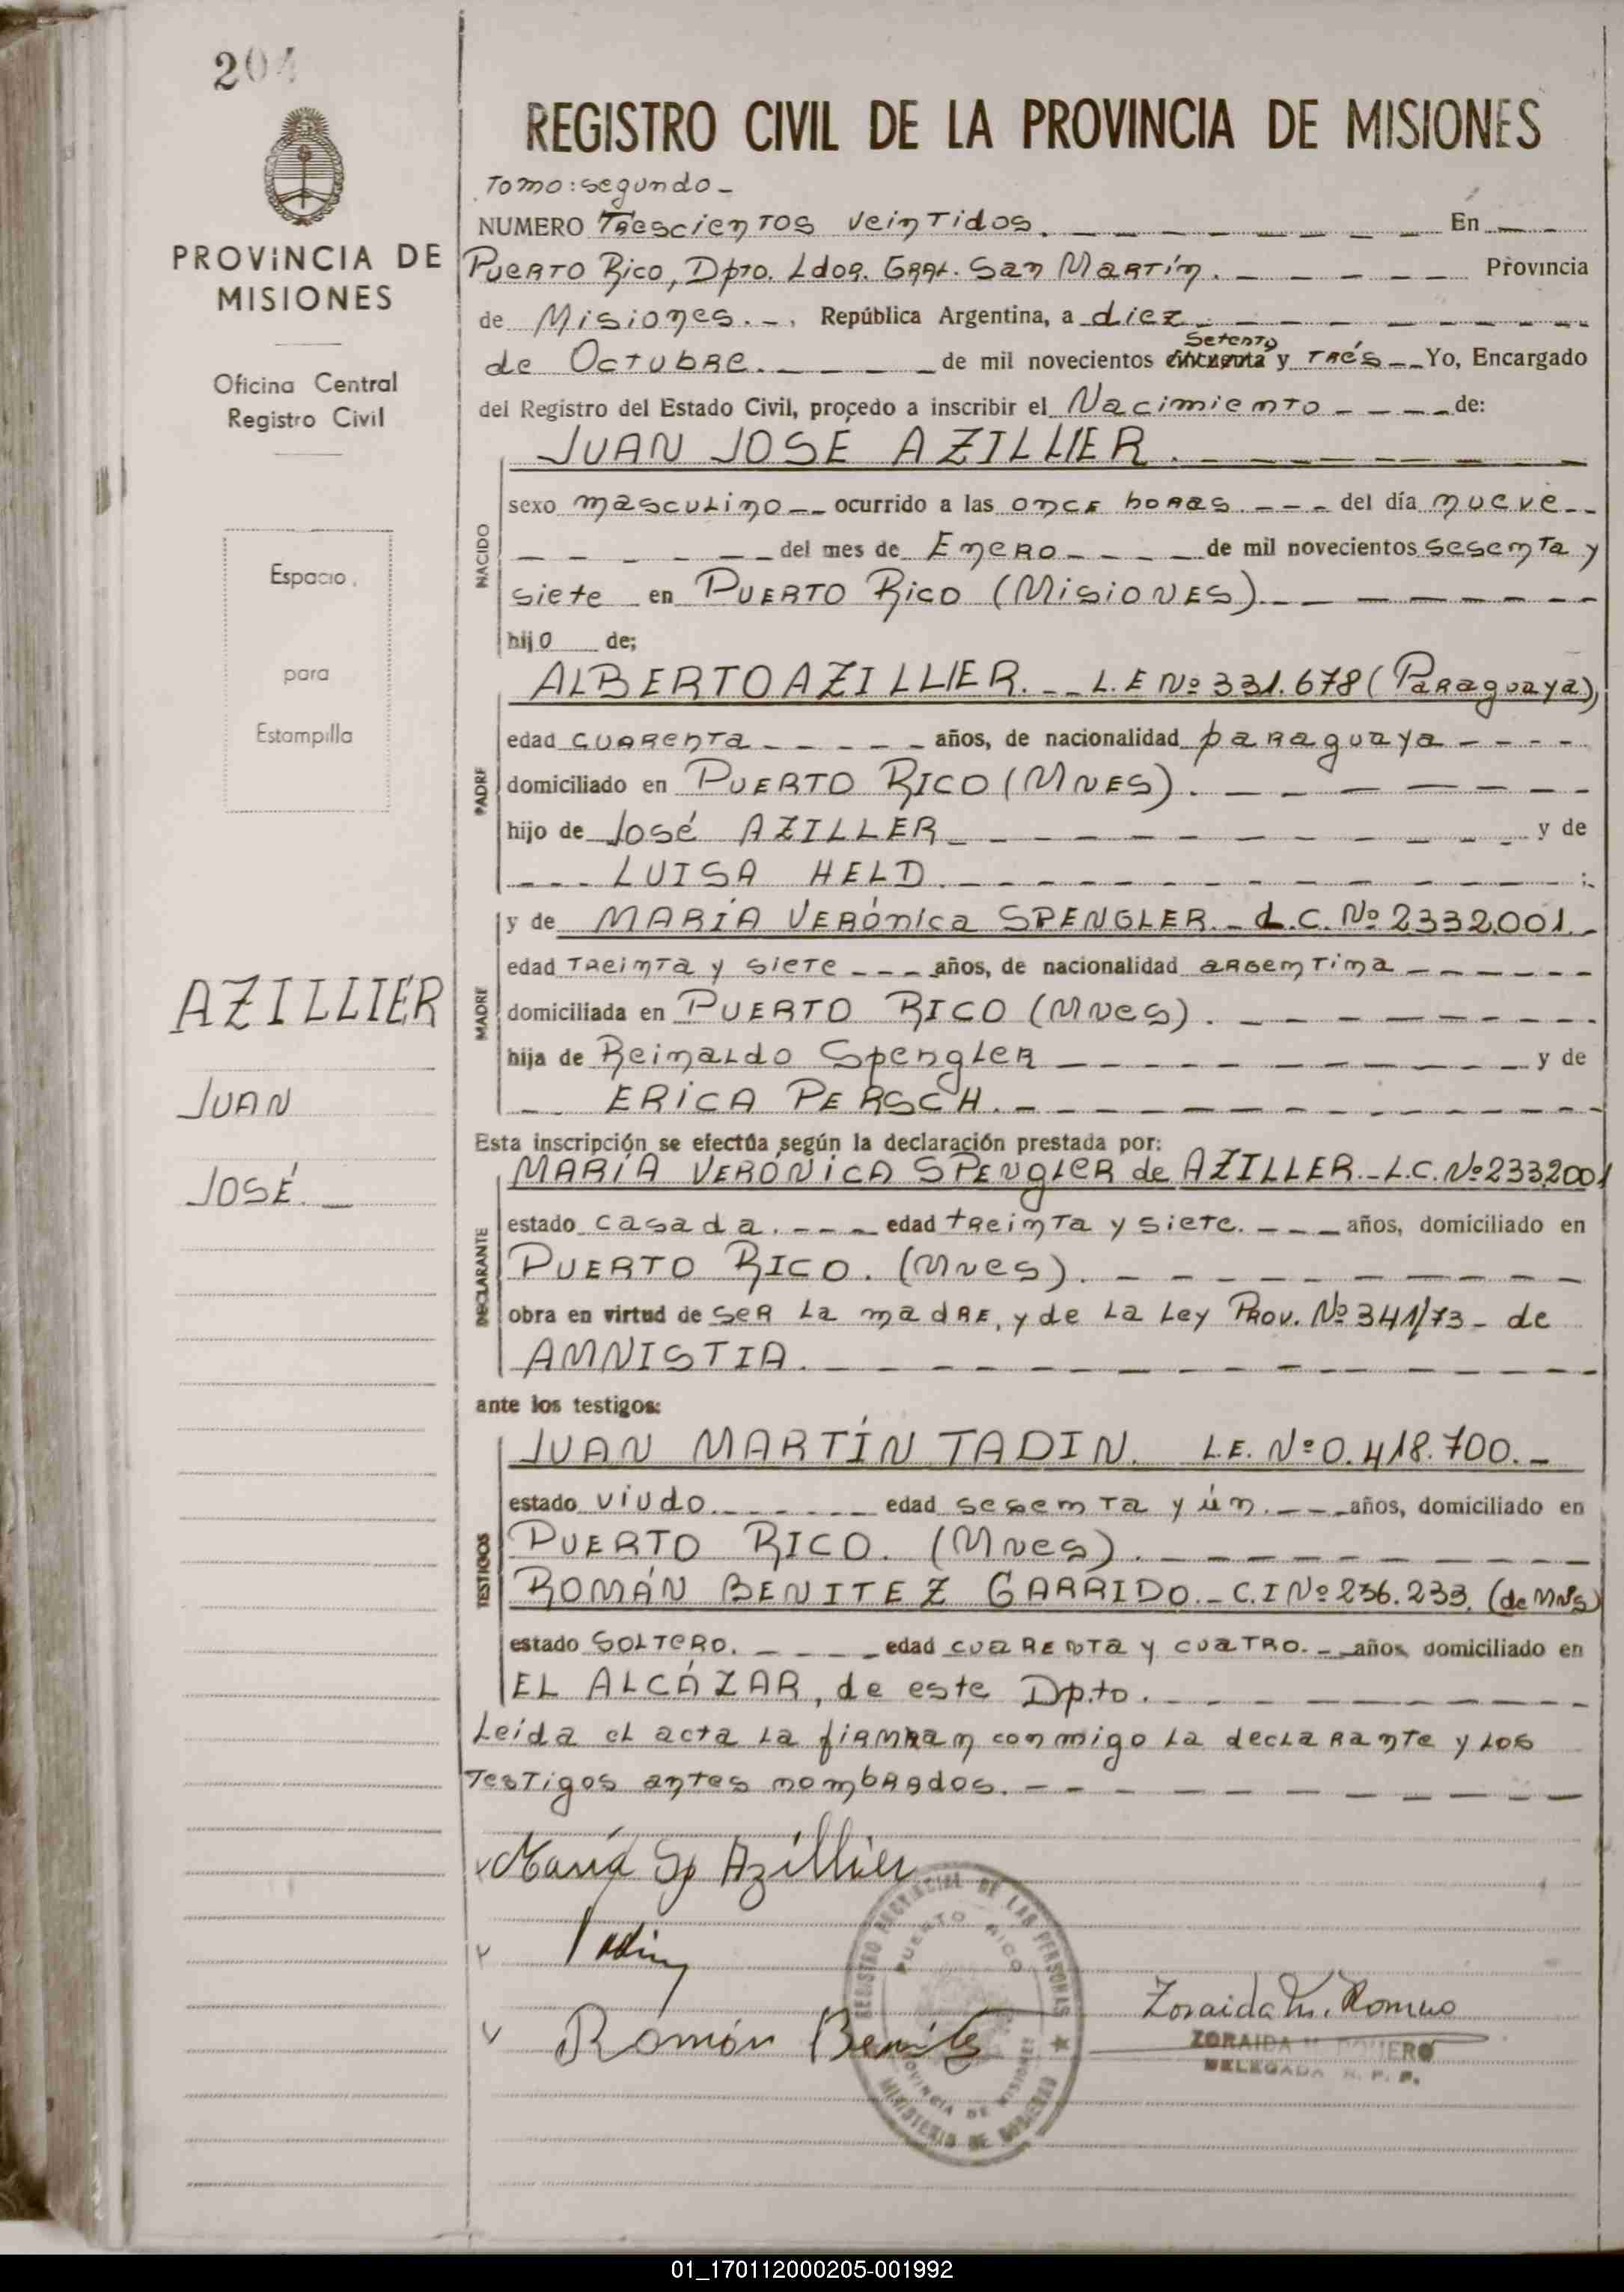 204
PROVINCIA DE
MISIONES
Oficina Central
Registro Civil
Espacio
para
Estampilla
AZILLIER
JUAN
JOSÉ.
REGISTRO CIVIL DE LA PROVINCIA DE MISIONES
Tomo: segundo -
NUMERO Trescientos veintidos. En
Puerto Rico, Dpto. Ldor. Gral. San Martín. Provincia
de Misiones. República Argentina, a diez
Setenta
de Octubre. de mil novecientos cincuenta y Trés Yo, Encargado
del Registro del Estado Civil, procedo a inscribir el Nacimiento de:
JUAN JOSÉ AZILLIER.
NACIDO
sexo masculino ocurrido a las once horas. del día nueve
del mes de Enero de mil novecientos sesenta y
siete en PUERTO RICO (MISIONES).
hijo de;
PADRE
ALBERTO AZILLIER. L.E Nº 331.678 (Paraguaya),
edad cuarenta años, de nacionalidad paraguaya
domiciliado en PUERTO RICO (MNES).
hijo de José AZILLER y de
LUISA HELD.
MADRE
y de MARÍA VERÓNICA SPENGLER. L.C. Nº 2332.001.
edad Treinta y siete años, de nacionalidad argentina
domiciliada en PUERTO RICO (Mnes).
hija de Reinaldo Spengler y de
ERICA PERSCH.
Esta inscripción se efectúa según la declaración prestada por:
DECLARANTE
MARÍA VERÓNICA SPENGLER de AZILLER. L.C. Nº 2332001
estado casada. edad treinta y siete. años, domiciliado en
PUERTO RICO. (Mnes).
obra en virtud de ser la madre, y de la Ley Prov. Nº 341/73 - de
AMNISTIA.
ante los testigos:
TESTIGOS
JUAN MARTÍN TADIN. L.E. Nº 0.418.700.
estado viudo. edad sesenta y ún. años, domiciliado en
PUERTO RICO. (Mnes).
ROMÁN BENITEZ GARRIDO. C.I Nº 236.233. (de Mns)
estado SOLTERO. edad cuarenta y cuatro. años, domiciliado en
EL ALCÁZAR, de este Dpto.
Leída el acta la firman conmigo la declarante y los
testigos antes nombrados.
María Sp Azillier
Tadin
Román Benitez
REGISTRO PROVINCIAL DE LAS PERSONAS
PUERTO RICO
PROVINCIA DE MISIONES
MINISTERIO DE GOBIERNO
Zoraida M. Romero
ZORAIDA M. ROMERO
DELEGADA R. P. P.
01_170112000205-001992